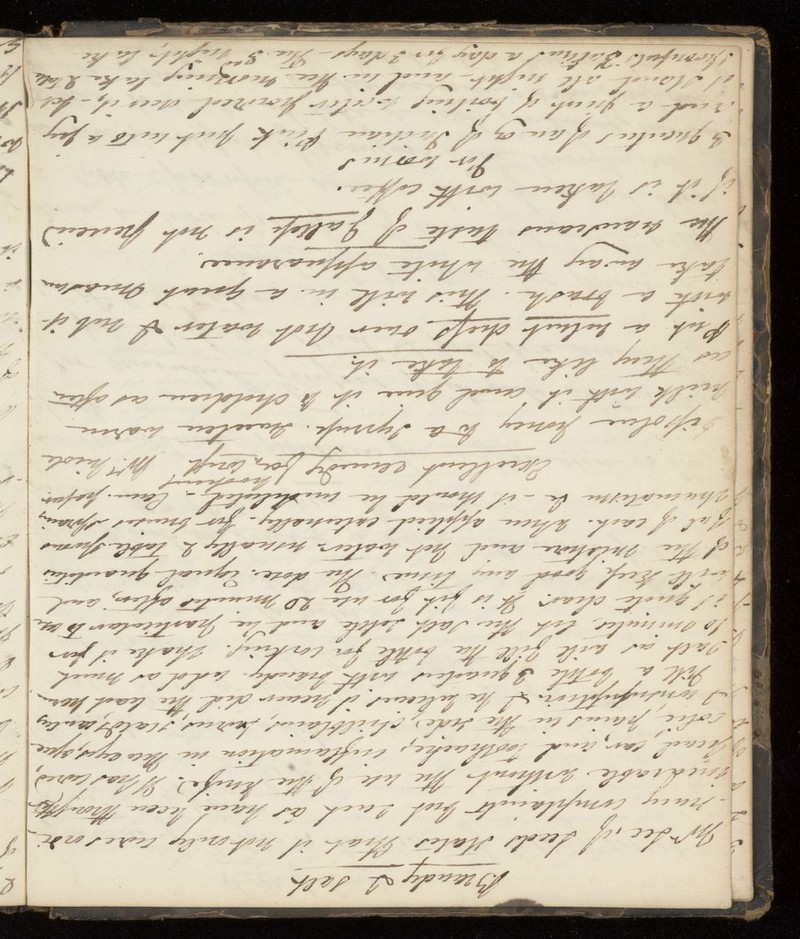 Brandy & Salt
Mr Lee of Leeds States that it not only cures ordi
-nary complaints but such as have been thought
incurable without the use of the Knife. It has cured
head, ear, and toothache, inflamation in the eyes,
colic, pains in the side, chilblains, burns, scalds, early
I consumption & he believes it never did the least harm
Fill a bottle 3 quarters with brandy. add as much
salt as will fill the bottle for corking. Shake it for
10 minutes, let the salt settle and be particular to use
it quite clear. It is fit for use 20 minutes after, and
will keep good any time. The dose. equal quantities
of the mixture and hot water. usually 2 table spoons
ful of each. when applied externally, for bruises sprains
rheumatism &c - it should be undiluted -
Excellent remedy for hooping cough
Dissolve honey to a syrup. Sweeten warm
milk with it and give it to children as often
as they like to take it.
Put a velvet dress over hot water & rub it
with a brush. this will in a great measure
take away the white appearance.
The nauseous taste of Jallop is not perceived
if it is taken with coffee.
For worms
3 quarters of an oz of Indian Pink put into a jug
and a pint of boiling water poured over it, let
it stand all night and in the morning take 2 table
spoonfuls 3 times a day for 3 days - The 3rd night, take